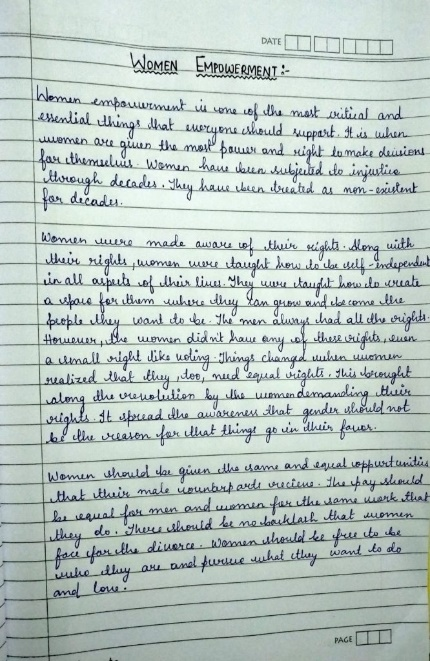 DATE
WOMEN EMPOWERMENT:-
Women empowerment is one of the most critical and
essential things that everyone should support. It is when
women are given the most power and right to make decisions
for themselves. Women have been subjected to injustice
through decades. They have been treated as non-existent
for decades.
Women were made aware of their rights. Along with
their rights, women were taught how to be self-independent
in all aspects of their lives. They were taught how to create
a space for them where they can grow and become the
people they want to be. The men always had all the rights.
However, the women didn't have any of these rights, even
a small right like voting. Things changed when women
realized that they, too, need equal rights. This brought
along the revolution by the women demanding their
rights. It spread the awareness that gender should not
be the reason for that things go in their favor.
Women should be given the same and equal opportunities
that their male counterparts recieve. The pay should
be equal for men and women for the same work that
they do. There should be no backlash that women
face for the divorce. Women should be free to be
who they are and pursue what they want to do
and love.
PAGE